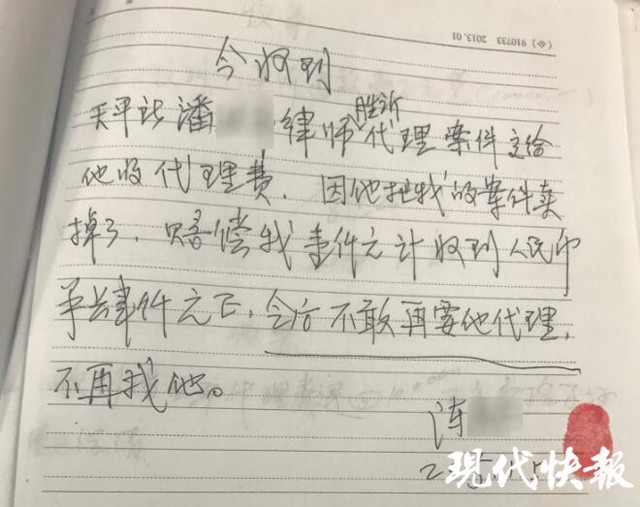 (伞) 910733 2013.01
今收到
天平所潘 律师胜诉代理案件交给
他收代理费，因他把我的案件卖
掉了，赔偿我 仟元计收到人民币
仟元正，今后不敢再要他代理，
不再找他。
现代快报